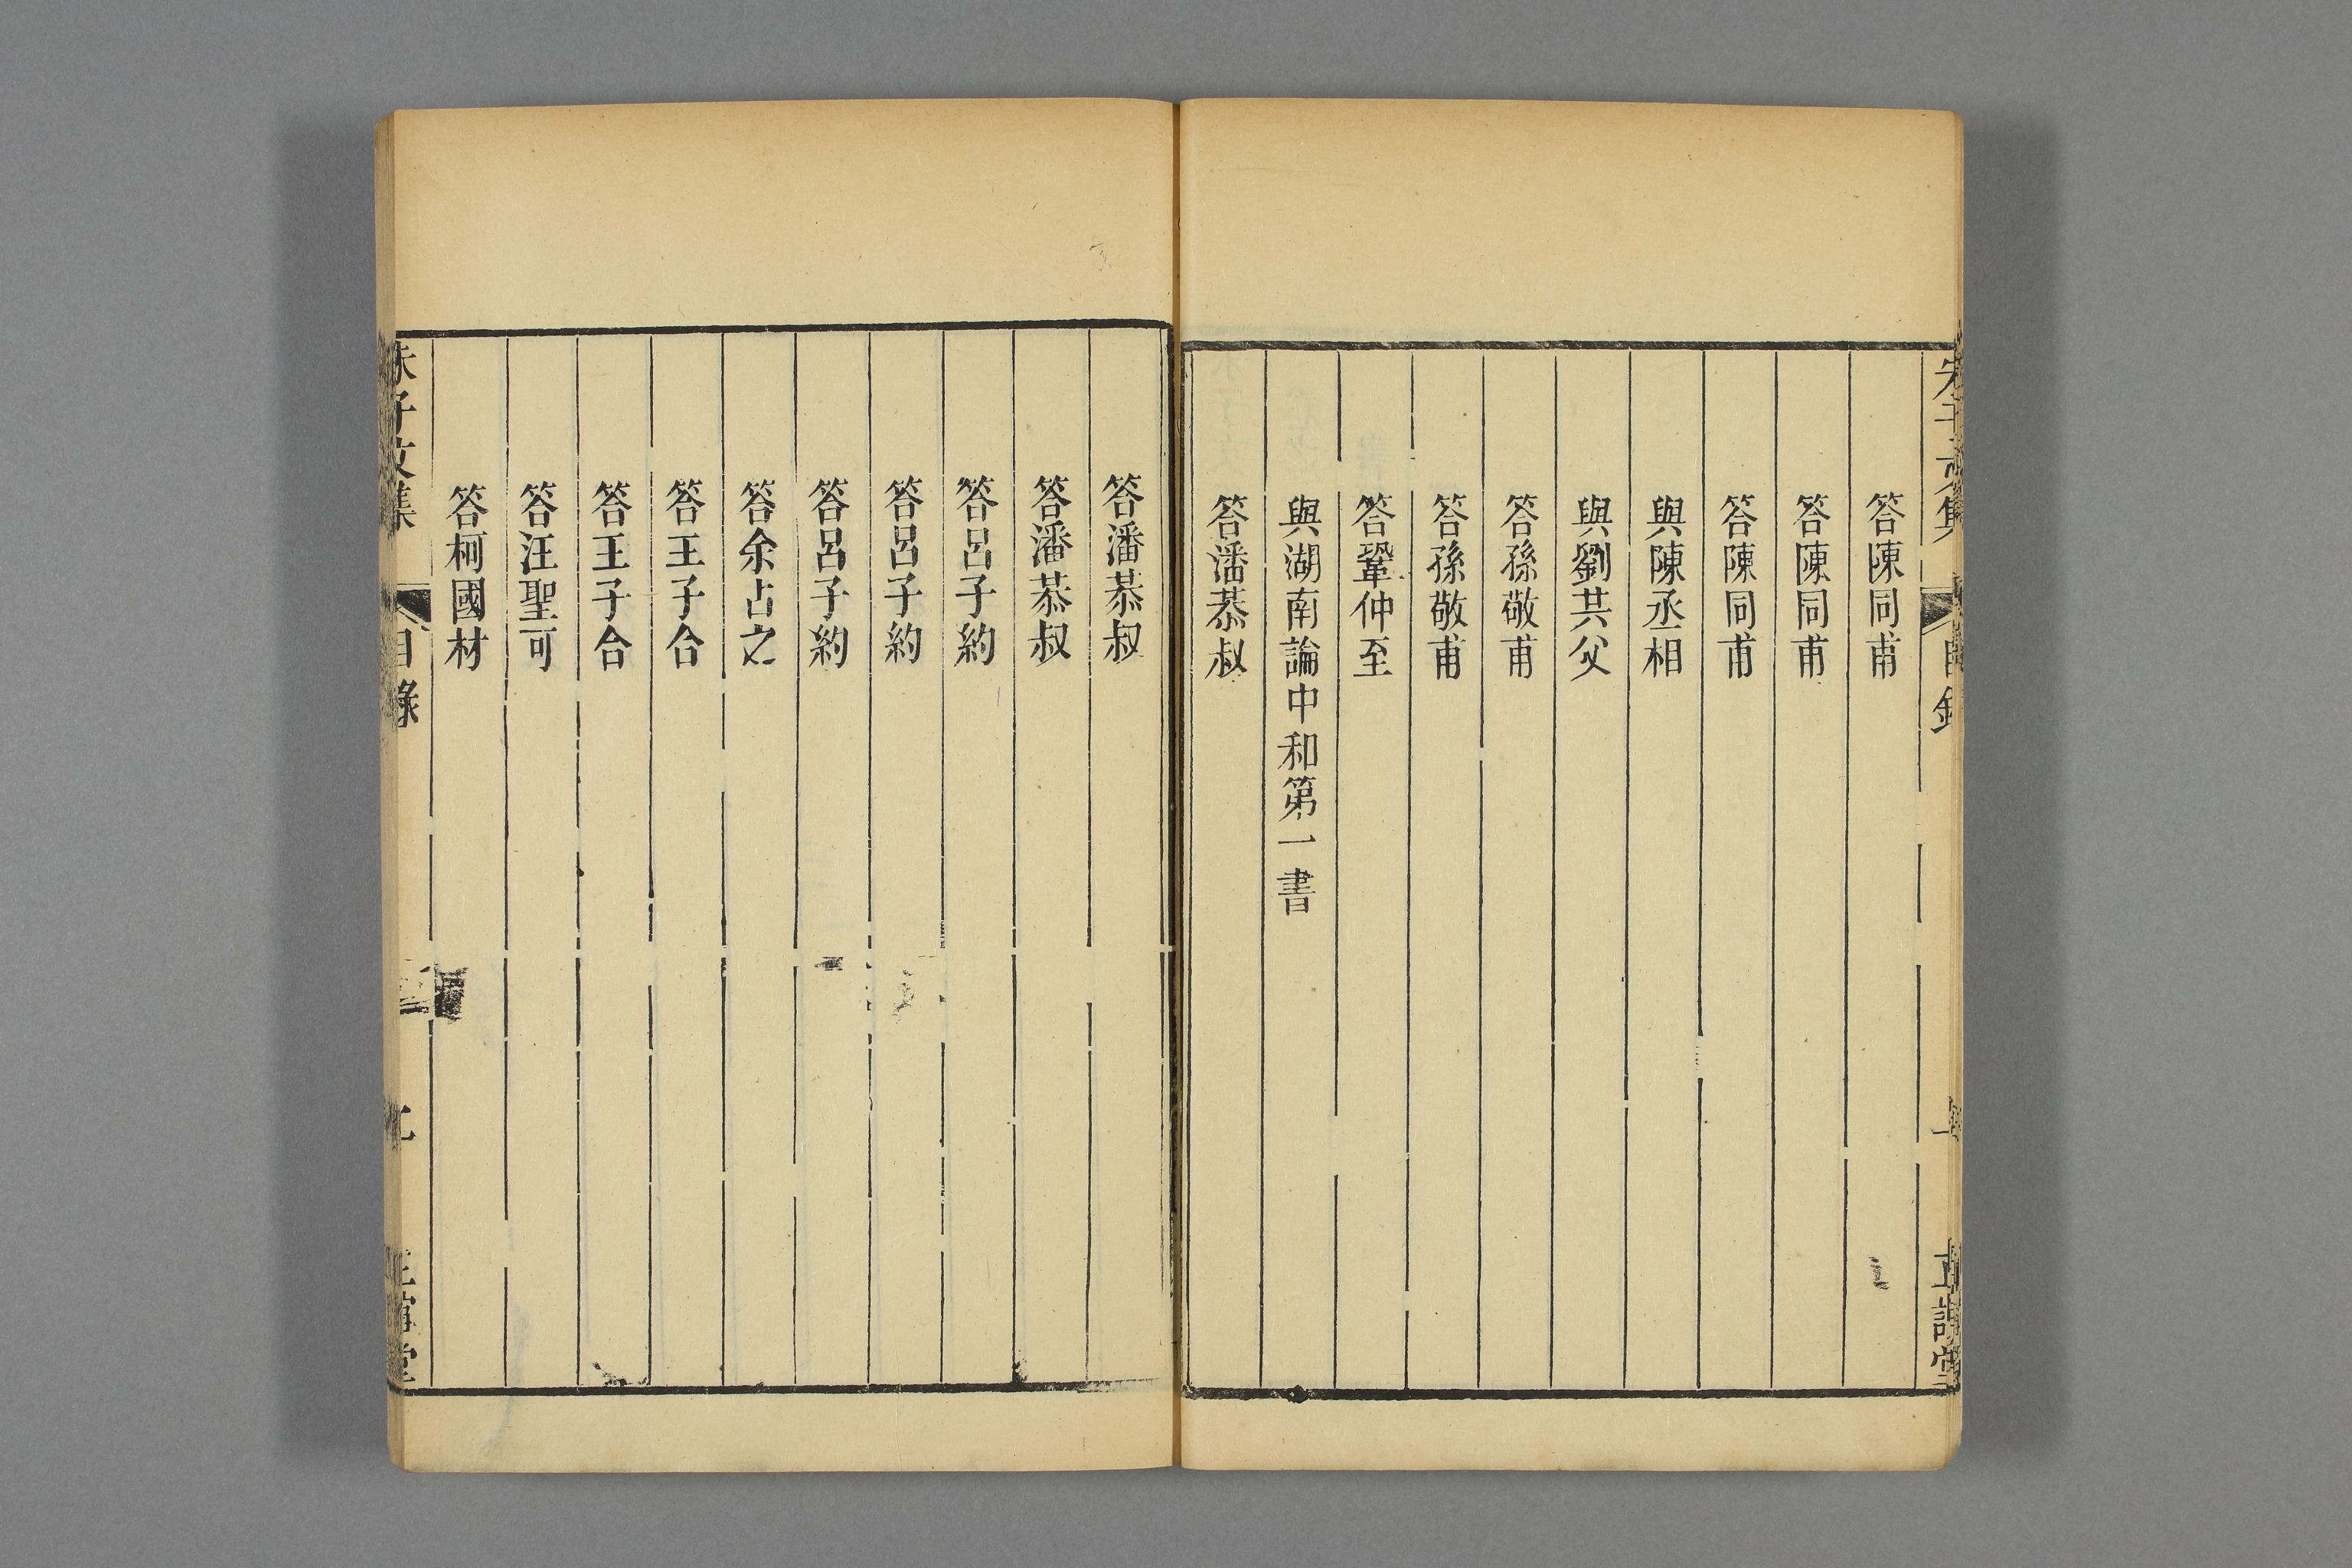 答陳同甫
答陳同甫
答陳同甫
與陳丞相
與劉共父
答孫敬甫
答孫敬甫
答鞏仲至
與湖南論中和第一書
答潘恭叔
答潘恭叔
答潘恭叔
答呂子約
答呂子約
答呂子約
答余占之
答王子合
答王子合
答汪聖可
答柯國材
朱子文集
目錄
正誼堂